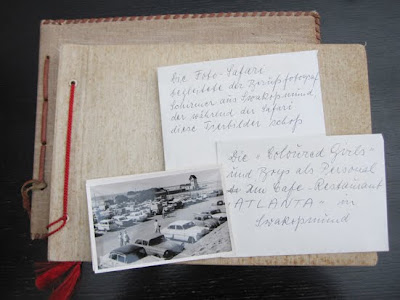 Die Foto-Safari
begleitete der Berufsfotograf
Schirmer aus Swakopmund
der während der Safari
diese Tierbilder schoß
Die "Coloured Girls"
und Boys als Personal
in dem Cafe-Restaurant
"ATLANTA" in
Swakopmund